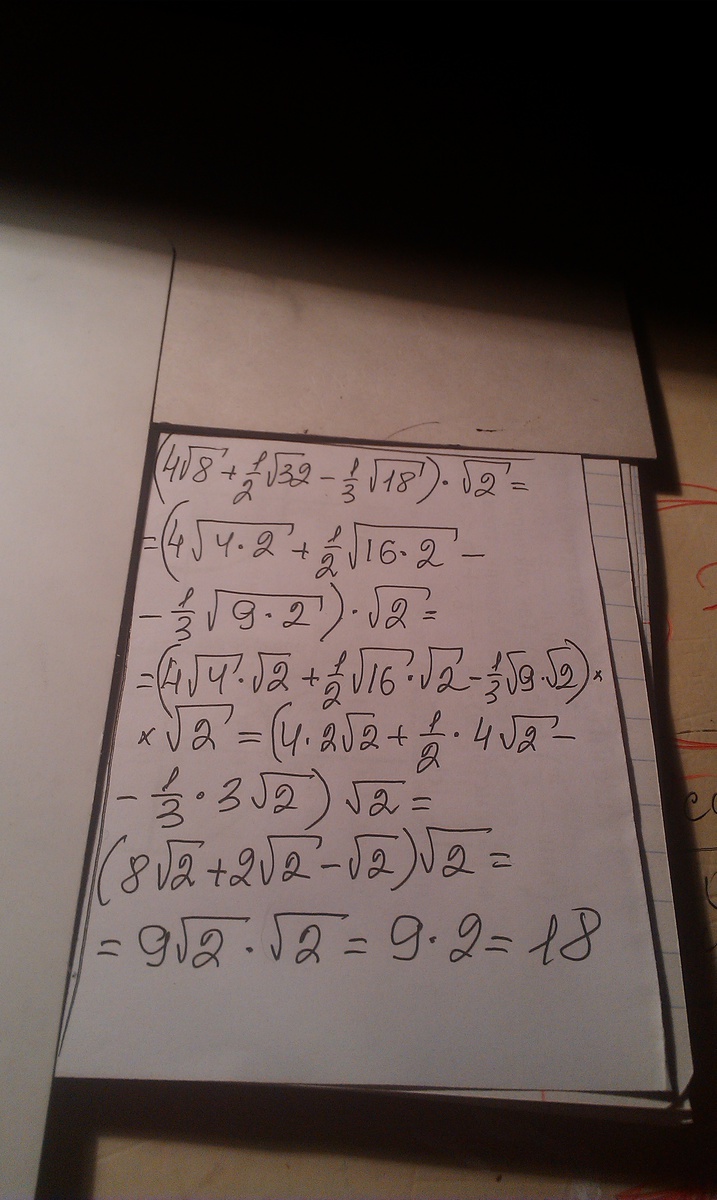 (4√8 + 1/2 √32 − 1/3 √18) · √2 =
= (4√4·2 + 1/2 √16·2 −
− 1/3 √9·2) · √2 =
= (4√4 · √2 + 1/2 √16 · √2 − 1/3 √9 · √2) ×
× √2 = (4 · 2√2 + 1/2 · 4√2 −
− 1/3 · 3√2) √2 =
(8√2 + 2√2 − √2) √2 =
= 9√2 · √2 = 9 · 2 = 18